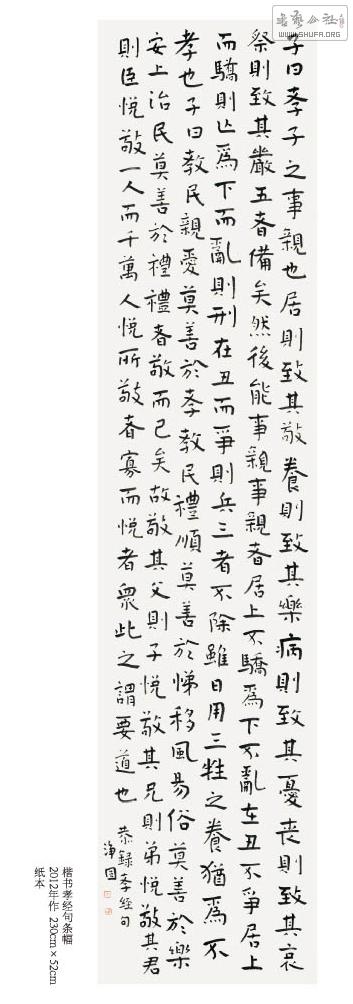 子曰孝子之事親也居則致其敬養則致其樂病則致其憂喪則致其哀
祭則致其嚴五者備矣然後能事親事親者居上不驕為下不亂在丑不爭居上
而驕則亡為下而亂則刑在丑而爭則兵三者不除雖日用三牲之養猶為不
孝也子曰教民親愛莫善於孝教民禮順莫善於悌移風易俗莫善於樂
安上治民莫善於禮禮者敬而已矣故敬其父則子悅敬其兄則弟悅敬其君
則臣悅敬一人而千萬人悅所敬者寡而悅者眾此之謂要道也
恭録孝經句
淨因
楷书孝经句条幅
2012年作 230cm×52cm
纸本
书艺公社
WWW.SHUFA.ORG